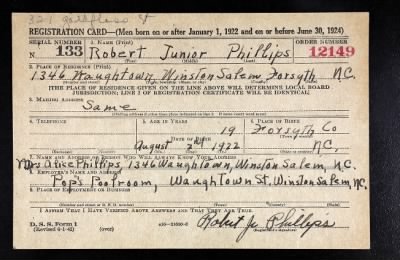 REGISTRATION CARD—(Men born on or after January 1, 1922 and on or before June 30, 1924)
SERIAL NUMBER 1. NAME (Print) ORDER NUMBER
N 133 Robert Junior Phillips 12149
(First) (Middle) (Last)
2. PLACE OF RESIDENCE (Print)
1346 Waughtown, Winston Salem, Forsyth N.C.
[THE PLACE OF RESIDENCE GIVEN ON THE LINE ABOVE WILL DETERMINE LOCAL BOARD
JURISDICTION; LINE 2 OF REGISTRATION CERTIFICATE WILL BE IDENTICAL]
3. MAILING ADDRESS
Same
4. TELEPHONE 5. AGE IN YEARS 6. PLACE OF BIRTH
19 Forsyth Co
DATE OF BIRTH
August 1922 N.C.
7. NAME AND ADDRESS OF PERSON WHO WILL ALWAYS KNOW YOUR ADDRESS
Mrs Alice Phillips, 1346 Waughtown, Winston Salem, N.C.
8. EMPLOYER'S NAME AND ADDRESS
Pop's Poolroom, Waughtown St, Winston Salem, N.C.
9. PLACE OF EMPLOYMENT OR BUSINESS
I AFFIRM THAT I HAVE VERIFIED ABOVE ANSWERS AND THAT THEY ARE TRUE.
D. S. S. Form 1
(Revised 6-1-42) (over) Robert Jr. Phillips